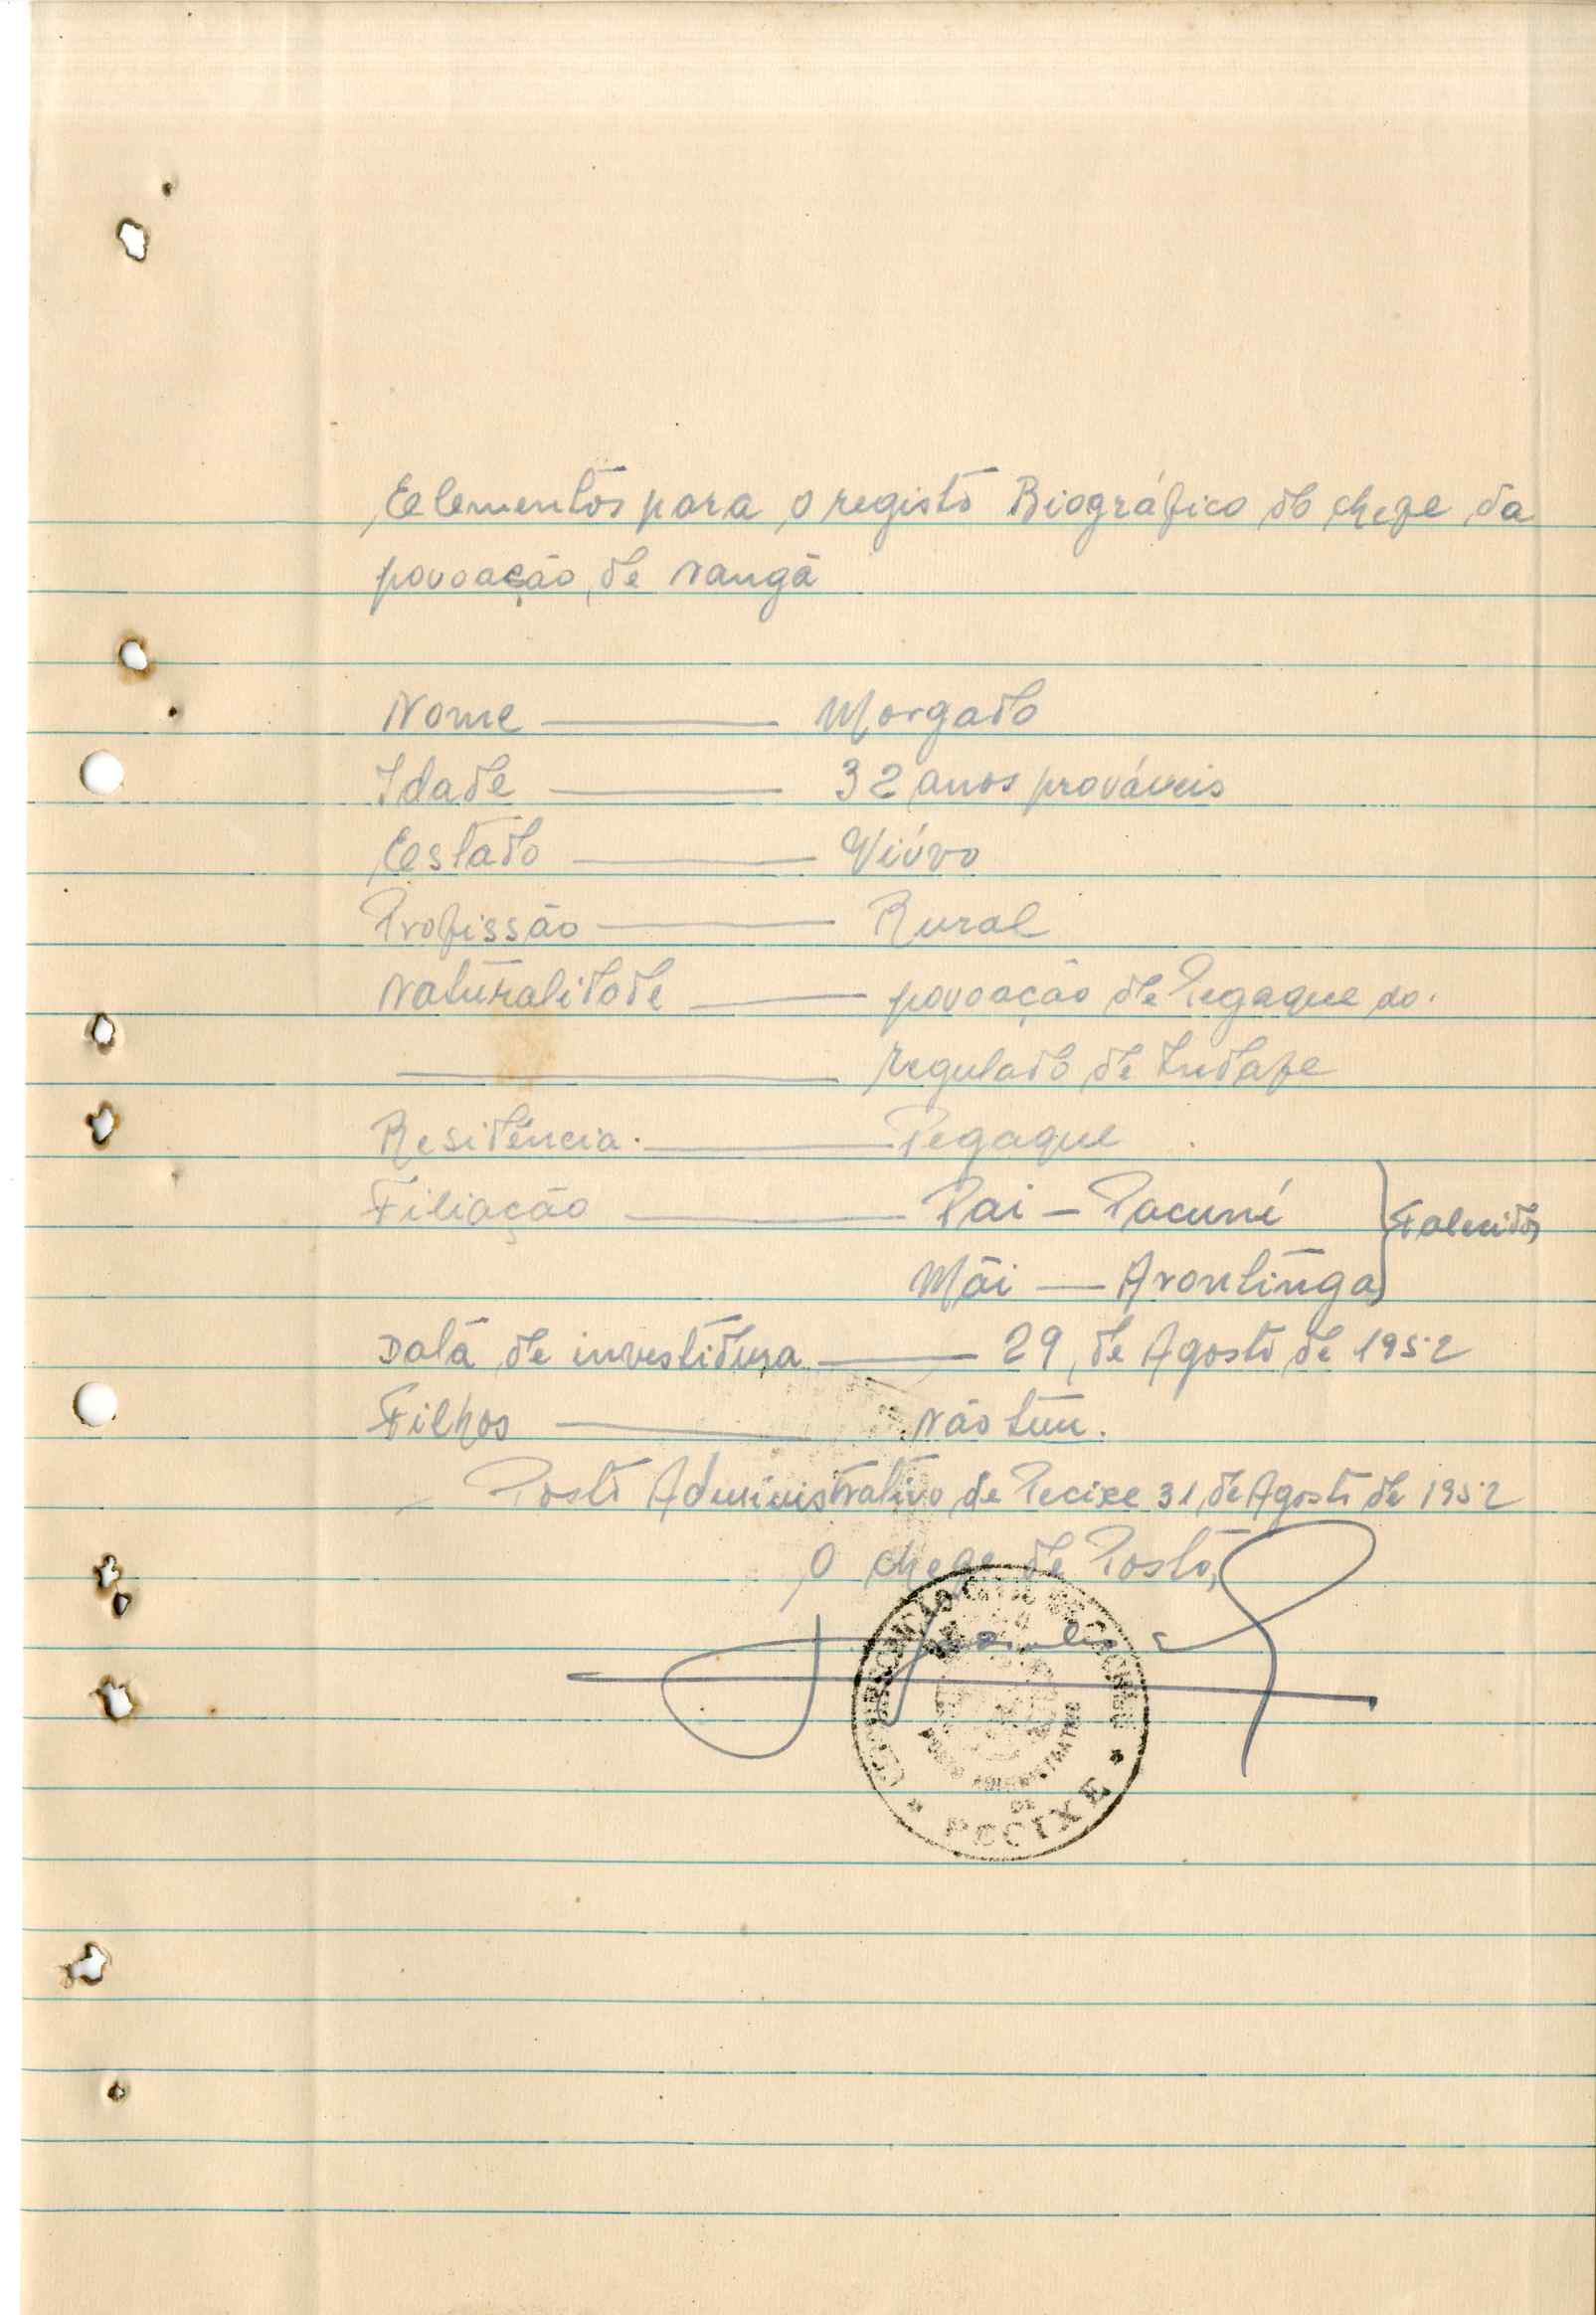 Elementos para o registo Biográfico do chefe da
povoação de Nangã
Nome — Morgado
Idade — 32 anos prováveis
Estado — Viúvo
Profissão — Rural
Naturalidade — povoação de Pegaque do
— regulado de Indafe
Residência — Pegaque
Filiação — Pai — Pacuné
Falecidos
Mãi — Arontinga
Data de investidura — 29 de Agosto de 1952
Filhos — Não tem.
Posto Administrativo de Pecixe 31 de Agosto de 1952
O chefe de Posto,
POSTO ADMINISTRATIVO
DE
PECIXE